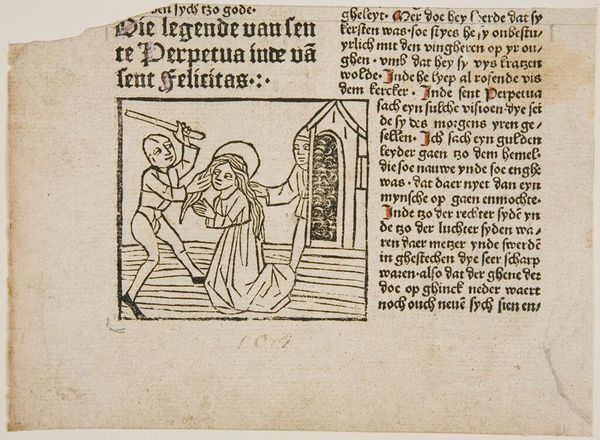 den sych tzo gode·
Die legende van sen
te Perpetua inde vā
sent Felicitas·:·
gheleyt· Mer doe hey herde dat sy
kersten was· soe stiyes hey onbestu
yrlich mit den vingheren op yr ou/
ghen· vmb dat hey sy vys kratzen
wolde· Inde he lyep al rosende vis
dem kercker· Inde sent Perpetua
sach eyn sulche visioen· dye sei
de sy des morgens yren ge/
sellen· Ich sach eyn gulden
leyder gaen tzo dem hemel·
die soe nauwe ynde soe enghe
was· dat daer nyet dan eyn
mynsche op gaen enmochte·
Inde tzo der rechter sydē yn
de tzo der luchter syden wa/
ren daer metzer ynde swerdē
in ghestechen dye seer scharp
waren· also dat der ghene der
doe op ghinck neder waert
noch ouch neuē sych sien en/
104